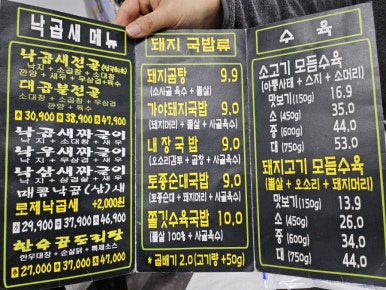 낙곱새 메뉴
낙곱새전골
낙지 + 소곱창 + 소대창
깐양 + 새우 + 우삼겹
대곱불전골
소대창 + 소곱창 + 우삼겹
깐양 + 육수
30,900 38,900 47,900
낙곱새짜글이
낙지 + 소대창 + 새우
낙우새짜글이
낙지 + 우삼겹 + 새우
낙삼새짜글이
매콤낙곱(삼)새
토제낙곱새 +2,000원
29,900 37,900 46,900
한우대창 + 순살닭 + 특제소스
27,000 37,000 47,000
돼지 국밥류
돼지곰탕 9.9
(소사골 육수 + 뽈살)
가야돼지국밥 9.9
(돼지머리 + 뽈살 + 사골육수)
내장국밥 9.9
(오소리감투 + 곱창 + 사골육수)
토종순대국밥 9.9
(토종순대 + 돼지머리 + 사골육수)
쫄깃수육국밥 10.0
(뽈살 100% + 사골육수)
* 곱배기 2.0(고기량 +50g)
수육
소고기 모듬수육
(아롱사태 + 스지 + 소머리)
맛보기(150g) 16.9
소 (450g) 35.0
중 (600g) 44.0
대 (750g) 53.0
돼지고기 모듬수육
(뽈살 + 오소리 + 돼지머리)
맛보기(150g) 13.9
소 (450g) 26.0
중 (600g) 34.0
대 (750g) 44.0